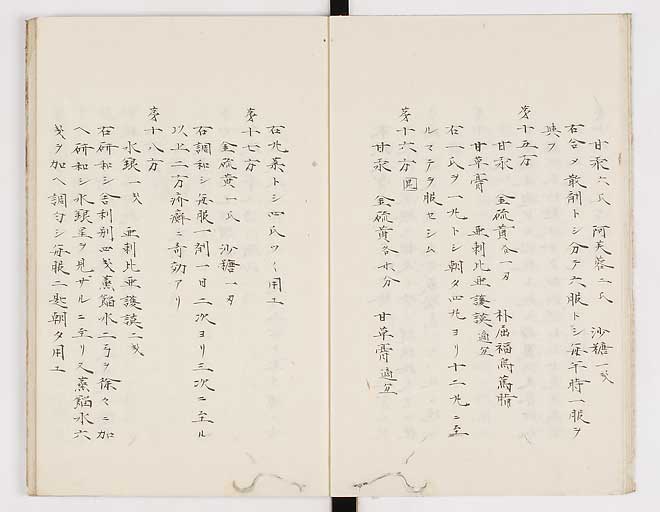 甘汞六氏 阿芙蓉二氏 沙糖一戔
右合メ散剤トシ分テ六服トシ毎午時一服ヲ
與フ
第十五方
甘汞 金硫黄各一刃 朴屈福烏篤脂
甘草膏 亜剌比亜護謨適宜
右一氏ヲ一丸トシ朝夕四丸ヨリ十二丸ニ至
ルマテヲ服セシム
第十六方圓
甘汞 金硫黄各廿六分 甘草膏適宜
右丸薬トシ四氏ツヽ用ユ
第十七方
金硫黄一氏 沙糖一刃
右調和シ毎服一剤一日二次ヨリ三次ニ至ル
以上二方疥癬ニ奇効アリ
第十八方
水銀一戔 亜剌比亜護謨二戔
右研和シ舎利別四戔薫䐉水二弓ヲ徐々ニ加
ヘ研和シ水銀星ヲ見ザルニ至リ又薫䐉水六
戔ヲ加ヘ調匀シ毎服二匙朝夕用ユ